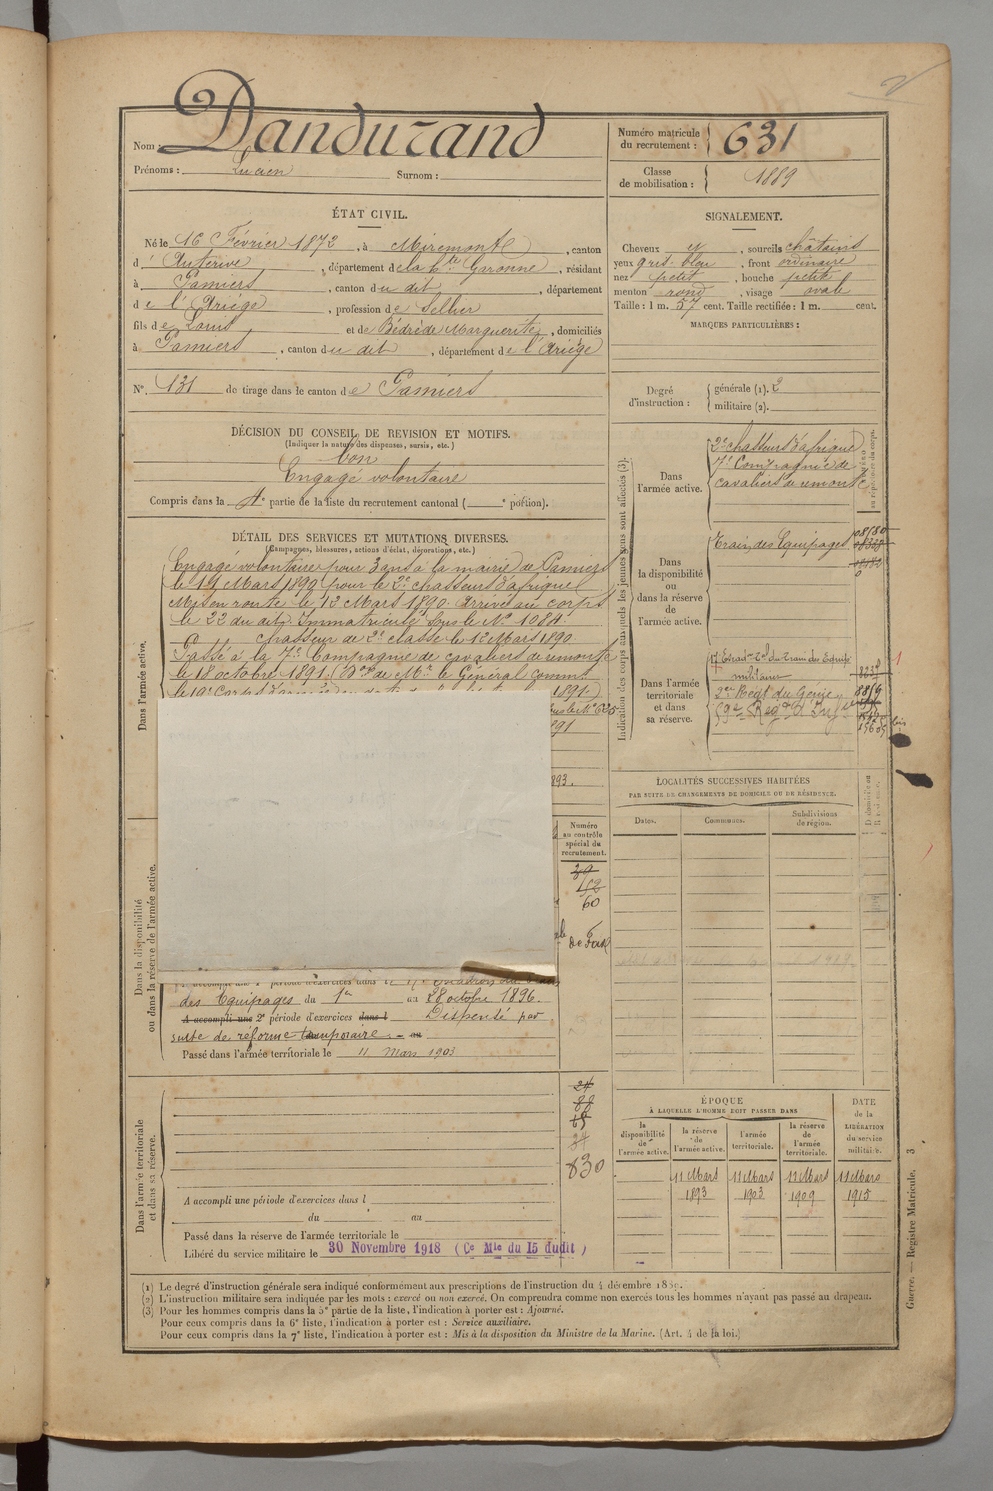 Nom : Dandurand
Prénoms : Lucien Surnom :
Numéro matricule du recrutement : 631
Classe de mobilisation : 1889
ÉTAT CIVIL.
Né le 16 Février 1872, à Miremont, canton
d' Auterive, département de la hte Garonne, résidant
à Pamiers, canton du dit, département
de l'Ariège, profession de Sellier
fils de Louis et de Bédrède Marguerite, domiciliés
à Pamiers, canton du dit, département de l'Ariège
N°. 131 de tirage dans le canton de Pamiers
SIGNALEMENT.
Cheveux et, sourcils châtains
yeux gris-bleu, front ordinaire
nez petit, bouche petite
menton rond, visage ovale
Taille : 1 m. 57 cent. Taille rectifiée : 1 m. cent.
MARQUES PARTICULIÈRES :
Degré d'instruction :
générale (1). 2
militaire (2).
DÉCISION DU CONSEIL DE REVISION ET MOTIFS.
(Indiquer la nature des dispenses, sursis, etc.)
bon
Engagé volontaire
Compris dans la 4e partie de la liste du recrutement cantonal ( e portion).
DÉTAIL DES SERVICES ET MUTATIONS DIVERSES.
(Campagnes, blessures, actions d'éclat, décorations, etc.)
Dans l'armée active.
Engagé volontaire pour 3 ans à la mairie de Pamiers
le 11 Mars 1890 pour le 2e chasseurs d'afrique
Mis en route le 12 Mars 1890. Arrivé au corps
le 22 du dit. Immatriculé sous le N° 1084
chasseur de 2e classe le 12 Mars 1890.
Passé à la 7e Compagnie de cavaliers de remonte
le 18 octobre 1891. de Mr le Général comm.
1891)
sous le N° 625
891
893.
Dans la disponibilité ou dans la réserve de l'armée active.
Numéro au contrôle spécial du recrutement.
39
152
60
des Equipages du 1er au 28 octobre 1896.
A accompli une 2e période d'exercices dans l Dispensé par
suite de réforme temporaire - au
Passé dans l'armée territoriale le 11 Mars 1903
Dans l'armée territoriale et dans sa réserve.
24
830
A accompli une période d'exercices dans l
du au
Passé dans la réserve de l'armée territoriale le
Libéré du service militaire le 30 Novembre 1918 (Ce Mle du 15 dudit)
Indication des corps auxquels les jeunes gens sont affectés (3).
Dans l'armée active.
2e chasseurs d'afrique
7e Compagnie de
cavaliers de remonte
Dans la disponibilité ou dans la réserve de l'armée active.
Train des Equipages
Dans l'armée territoriale et dans sa réserve.
17 Escadron Tal du Train des Equip.
militaires
2e Régt du Génie
59e Régt d'Infie
LOCALITÉS SUCCESSIVES HABITÉES
PAR SUITE DE CHANGEMENTS DE DOMICILE OU DE RÉSIDENCE.
Dates. Communes. Subdivisions de région.
ÉPOQUE
À LAQUELLE L'HOMME DOIT PASSER DANS
la disponibilité de l'armée active.
la réserve de l'armée active.
l'armée territoriale.
la réserve de l'armée territoriale.
DATE de la LIBÉRATION du service militaire.
11 Mars 11 Mars 11 Mars 11 Mars
1893 1903 1909 1915
(1) Le degré d'instruction générale sera indiqué conformément aux prescriptions de l'instruction du 4 décembre 1889.
(2) L'instruction militaire sera indiquée par les mots : exercé ou non exercé. On comprendra comme non exercés tous les hommes n'ayant pas passé au drapeau.
(3) Pour les hommes compris dans la 5e partie de la liste, l'indication à porter est : Ajourné.
Pour ceux compris dans la 6e liste, l'indication à porter est : Service auxiliaire.
Pour ceux compris dans la 7e liste, l'indication à porter est : Mis à la disposition du Ministre de la Marine. (Art. 4 de la loi.)
Guerre. — Registre Matricule. 3